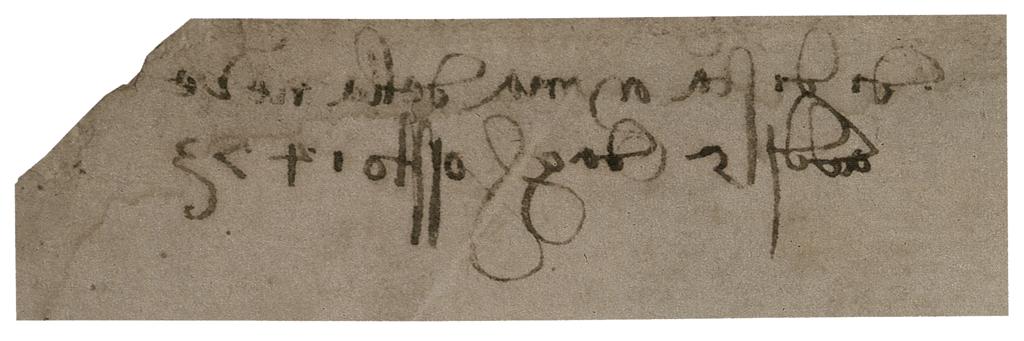 di di sta maria della neve
addi 5 daghossto 1473